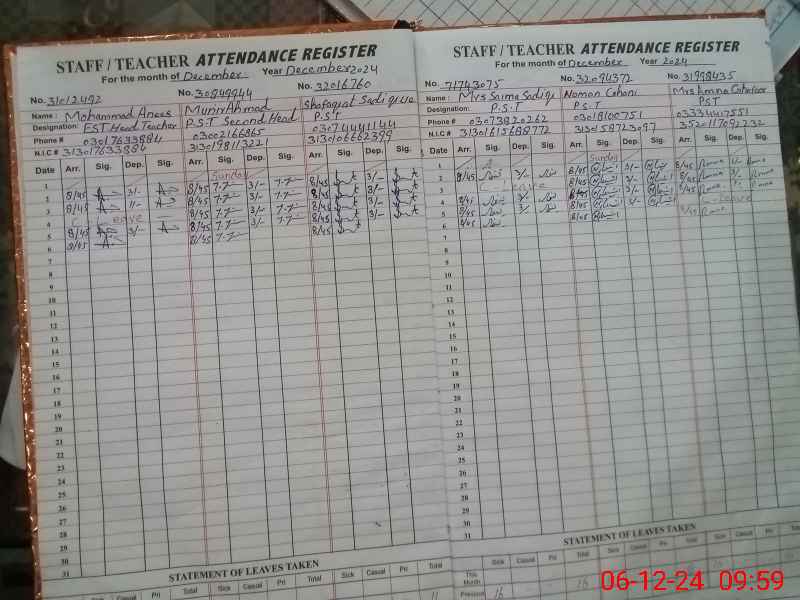 STAFF / TEACHER ATTENDANCE REGISTER
For the month of December Year December 2024
No. 31012492 No. 30849944 No. 32016760
Name : Mohammad Anees Munir Ahmad Shafaqat Sadique
Designation: EST Head Teacher P.S.T Second Head P.S.T
Phone # 03017633884 03002166865 03074441144
N.I.C # 313017633884 3130198113221 3130106662399
Date Arr. Sig. Dep. Sig. Arr. Sig. Dep. Sig. Arr. Sig. Dep. Sig.
1 Sunday
2 8/45 3/- 8/45 3/- 8/45 3/-
3 8/45 11/- 8/45 3/- 8/45 3/-
4 C-Leave 8/45 3/- 8/45 3/-
5 8/45 3/- 8/45 3/- 8/45 3/-
6 8/45 8/45 8/45
7
8
9
10
11
12
13
14
15
16
17
18
19
20
21
22
23
24
25
26
27
28
29
30
31
STATEMENT OF LEAVES TAKEN
Sick Casual Pri Total Sick Casual Pri Total Sick Casual Pri Total
STAFF / TEACHER ATTENDANCE REGISTER
For the month of December Year 2024
No. 71743075 No. 32094372 No. 31998435
Name : Mrs Saima Sadiq Noman Mrs Amna
Designation: P.S.T P.S.T PST
Phone # 03073820262 03018100751 03334417551
N.I.C # 3130161568877 2 3130158723097 352011709 2232
Date Arr. Sig. Dep. Sig. Arr. Sig. Dep. Sig. Arr. Sig. Dep. Sig.
1 Sunday
2 8/45 3/- 8/45 3/- 8/45
3 Leave 8/45 3/- 8/45
4 8/45 3/- 8/45 3/- 8/45
5 8/45 3/- 8/45 3/- C-Leave
6 8/45 8/45 8/45
7
8
9
10
11
12
13
14
15
16
17
18
19
20
21
22
23
24
25
26
27
28
29
30
31
STATEMENT OF LEAVES TAKEN
Sick Casual Pri Total Sick Casual Pri Total Sick Casual Pri Total
This Month
Previous 16
06-12-24 09:59